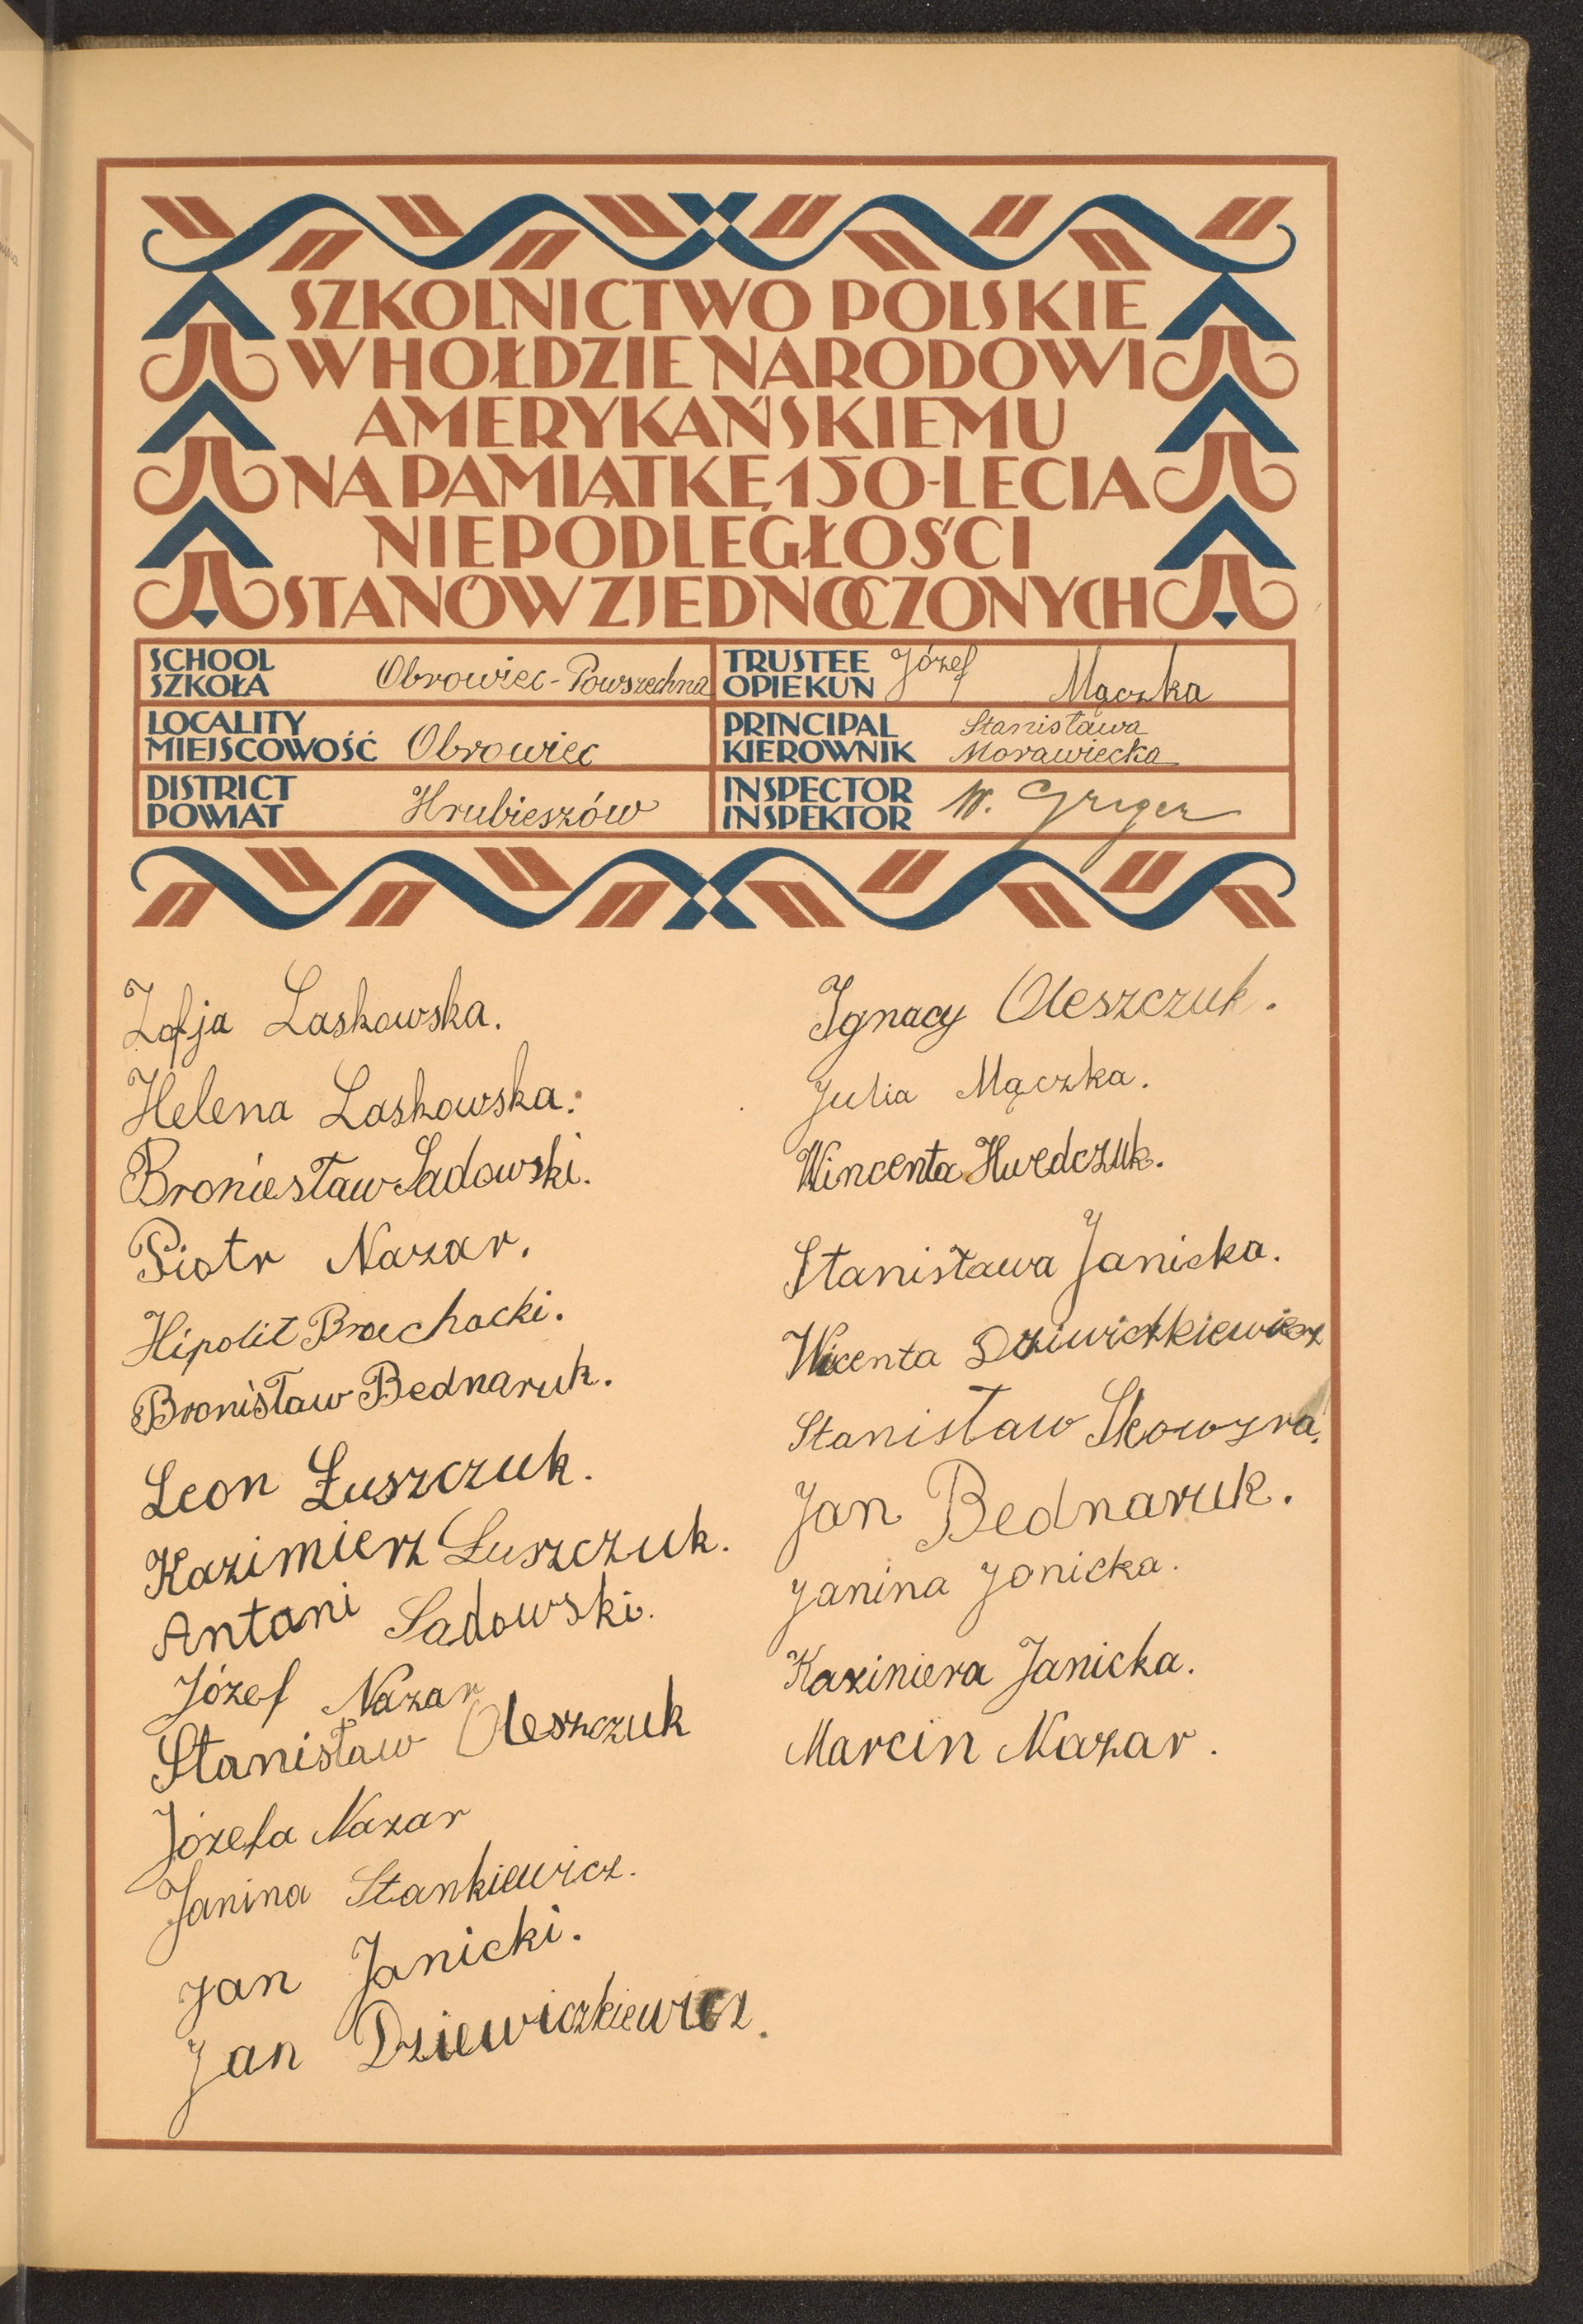 SZKOLNICTWO POLSKIE
W HOŁDZIE NARODOWI
AMERYKAŃSKIEMU
NA PAMIĄTKĘ 150-LECIA
NIEPODLEGŁOŚCI
STANÓW ZJEDNOCZONYCH
SCHOOL
SZKOŁA Obrowiec-Powszechna
TRUSTEE
OPIEKUN Józef Mączka
LOCALITY
MIEJSCOWOŚĆ Obrowiec
PRINCIPAL Stanisława
KIEROWNIK Morawiecka
DISTRICT
POWIAT Hrubieszów
INSPECTOR
INSPEKTOR W. Gryger
Zofja Laskowska.
Helena Laskowska.
Broniesław Sadowski.
Piotr Nazar.
Hipolit Brachocki.
Bronisław Bednaruk.
Leon Łuszczuk.
Kazimierz Łuszczuk.
Antoni Sadowski.
Józef Nazar
Stanisław Oleszczuk
Józefa Nazar
Janina Stankiewicz.
Jan Janicki.
Jan Dziewiczkiewicz.
Ignacy Oleszczuk.
Julia Mączka.
Wincenta Hwedczuk.
Stanisława Janicka.
Wicenta Dziwiczkiewicz
Stanisław Skowyra.
Jan Bednaruk.
Janina Janicka.
Kaziniera Janicka.
Marcin Nazar.